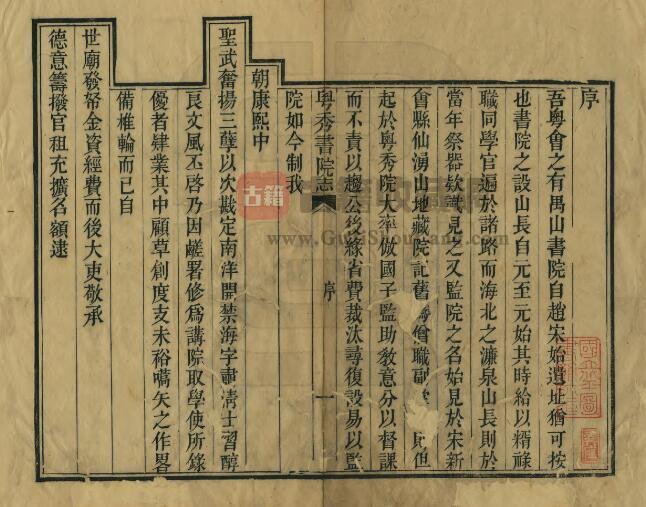 序
吾粤會之有禺山書院自趙宋始遺址猶可按
也書院之設山長自元至元始其時給以糈祿
職同學官遍於諸路而海北之濂泉山長則於
當年祭器欵識見之又監院之名始見於宋新
會縣仙湧山地藏院記舊 會職副 民但
起於粤秀院大率倣國子監助敎意分以督課
而不責以趨公後緣省費裁汰尋復設易以監
粤秀書院志
序
一
院如今制我
朝康熙中
聖武奮揚三孽以次戡定南洋開禁海宇肅淸士習醇
良文風丕啓乃因鹺署修爲講院取學使所錄
優者肄業其中顧草創度支未裕嚆矢之作畧
備椎輪而已自
世廟發帑金資經費而後大吏敬承
德意籌撥官租充擴名額逮
古籍
www.GuJiShouCang.com